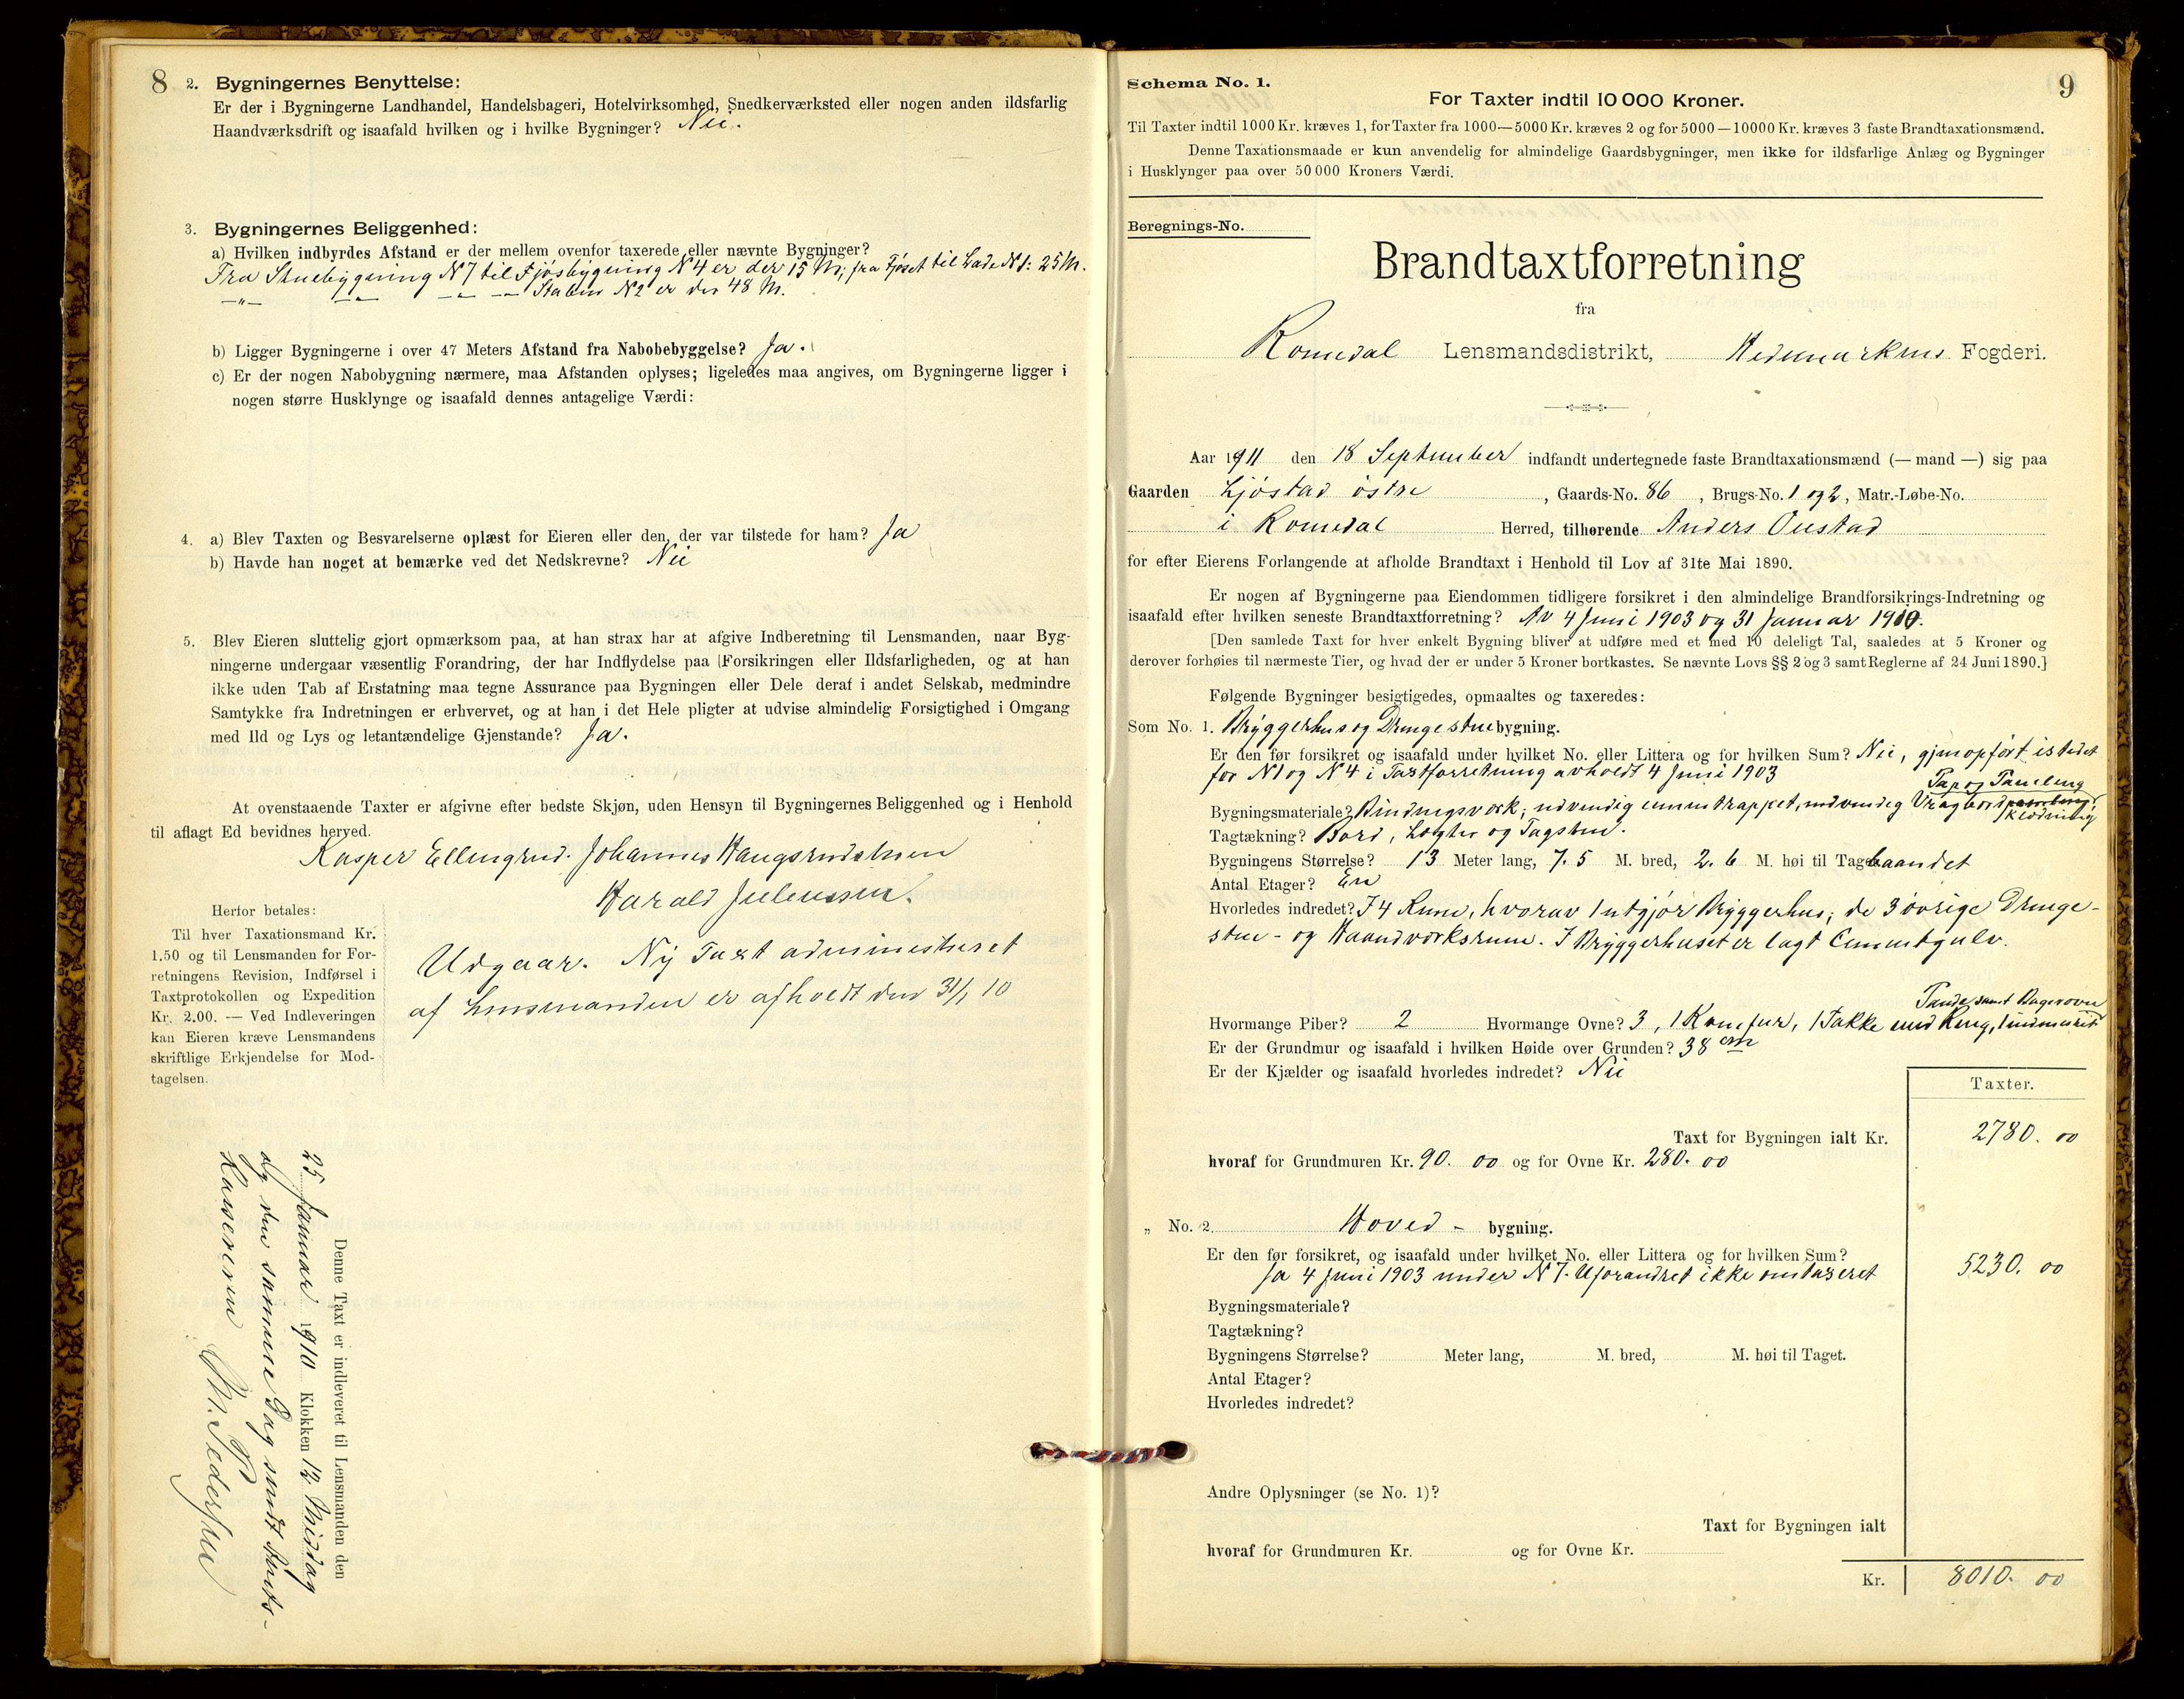 8
2. Bygningernes Benyttelse:
Er der i Bygningerne Landhandel, Handelsbageri, Hotelvirksomhed, Snedkerværksted eller nogen anden ildsfarlig
Haandværksdrift og isaafald hvilken og i hvilke Bygninger? Nei.
3. Bygningernes Beliggenhed:
a) Hvilken indbyrdes Afstand er der mellem ovenfor taxerede eller nævnte Bygninger?
Fra Stuebygning N 7 til Fjøsbygning N 4 er der 15 M; fra Fjøset til Lade N 1: 25 M.
—"— —"— —"— —"— Stabur N 2 er der 48 M.
b) Ligger Bygningerne i over 47 Meters Afstand fra Nabobebyggelse? Ja.
c) Er der nogen Nabobygning nærmere, maa Afstanden oplyses; ligeledes maa angives, om Bygningerne ligger i
nogen større Husklynge og isaafald dennes antagelige Værdi:
4. a) Blev Taxten og Besvarelserne oplæst for Eieren eller den, der var tilstede for ham? Ja
b) Havde han noget at bemærke ved det Nedskrevne? Nei
5. Blev Eieren sluttelig gjort opmærksom paa, at han strax har at afgive Indberetning til Lensmanden, naar Byg-
ningerne undergaar væsentlig Forandring, der har Indflydelse paa Forsikringen eller Ildsfarligheden, og at han
ikke uden Tab af Erstatning maa tegne Assurance paa Bygningen eller Dele deraf i andet Selskab, medmindre
Samtykke fra Indretningen er erhvervet, og at han i det Hele pligter at udvise almindelig Forsigtighed i Omgang
med Ild og Lys og letantændelige Gjenstande? Ja.
At ovenstaaende Taxter er afgivne efter bedste Skjøn, uden Hensyn til Bygningernes Beliggenhed og i Henhold
til aflagt Ed bevidnes herved.
Kasper Ellingsrud. Johannes
Harald Juliussen.
Herfor betales:
Til hver Taxationsmand Kr.
1.50 og til Lensmanden for For-
retningens Revision, Indførsel i
Taxtprotokollen og Expedition
Kr. 2.00. — Ved Indleveringen
kan Eieren kræve Lensmandens
skriftlige Erkjendelse for Mod-
tagelsen.
Udgaar. Ny Taxt administreret
af Lensmanden er afholdt den 31/1 10
Denne Taxt er indleveret til Lensmanden den
25 Januar 1910 Klokken 12 Middag
og den samme Dag sendt Skrifts-
Kasereren
Pedersen
Schema No. 1.
9
For Taxter indtil 10 000 Kroner.
Til Taxter indtil 1000 Kr. kræves 1, for Taxter fra 1000—5000 Kr. kræves 2 og for 5000—10000 Kr. kræves 3 faste Brandtaxationsmænd.
Denne Taxationsmaade er kun anvendelig for almindelige Gaardsbygninger, men ikke for ildsfarlige Anlæg og Bygninger
i Husklynger paa over 50 000 Kroners Værdi.
Beregnings-No.
Brandtaxtforretning
fra
Romedal Lensmandsdistrikt, Hedemarkens Fogderi.
Aar 1911 den 18 September indfandt undertegnede faste Brandtaxationsmænd (— mand —) sig paa
Gaarden Ljøstad østre, Gaards-No. 86, Brugs-No. 1 og 2, Matr.-Løbe-No.
i Romedal Herred, tilhørende Anders Oustad
for efter Eierens Forlangende at afholde Brandtaxt i Henhold til Lov af 31te Mai 1890.
Er nogen af Bygningerne paa Eiendommen tidligere forsikret i den almindelige Brandforsikrings-Indretning og
isaafald efter hvilken seneste Brandtaxtforretning? Av 4 Juni 1903 og 31 Januar 1910.
[Den samlede Taxt for hver enkelt Bygning bliver at udføre med et med 10 deleligt Tal, saaledes at 5 Kroner og
derover forhøies til nærmeste Tier, og hvad der er under 5 Kroner bortkastes. Se nævnte Lovs §§ 2 og 3 samt Reglerne af 24 Juni 1890.]
Følgende Bygninger besigtigedes, opmaaltes og taxeredes:
Som No. 1. Bryggerhus og Drengestuebygning.
Er den før forsikret og isaafald under hvilket No. eller Littera og for hvilken Sum? Nei, gjenopført istedet
for N 1 og N 4 i Taxtforretning avholdt 4 Juni 1903
Tap og Paneling
Bygningsmateriale? Bindingsverk; udvendig cementrappet, indvendig klædning
Tagtækning? Bord, Legter og Tagsten.
Bygningens Størrelse? 13 Meter lang, 7.5 M. bred, 2.6 M. høi til Tagebaandet
Antal Etager? En
Hvorledes indredet? I 4 Rum, hvorav 1 utgjør Bryggerhus; de 3 øvrige Drenge-
stue- og Haandverksrum. I Bryggerhuset er lagt Cementgulv.
Pande samt Bagerovn
Hvormange Piber? 2 Hvormange Ovne? 3, 1 Komfur, 1 Takke med Ring, 1 indmuret
Er der Grundmur og isaafald i hvilken Høide over Grunden? 38 cm
Er der Kjælder og isaafald hvorledes indredet? Nei
Taxter.
Taxt for Bygningen ialt Kr. 2780. 00
hvoraf for Grundmuren Kr. 90. 00 og for Ovne Kr. 280. 00
„ No. 2. Hoved- bygning.
Er den før forsikret, og isaafald under hvilket No. eller Littera og for hvilken Sum?
Ja 4 Juni 1903 under N 7. Uforandret ikke omtaxeret 5230. 00
Bygningsmateriale?
Tagtækning?
Bygningens Størrelse? Meter lang, M. bred, M. høi til Taget.
Antal Etager?
Hvorledes indredet?
Andre Oplysninger (se No. 1)?
Taxt for Bygningen ialt
hvoraf for Grundmuren Kr. og for Ovne Kr.
Kr. 8010. 00